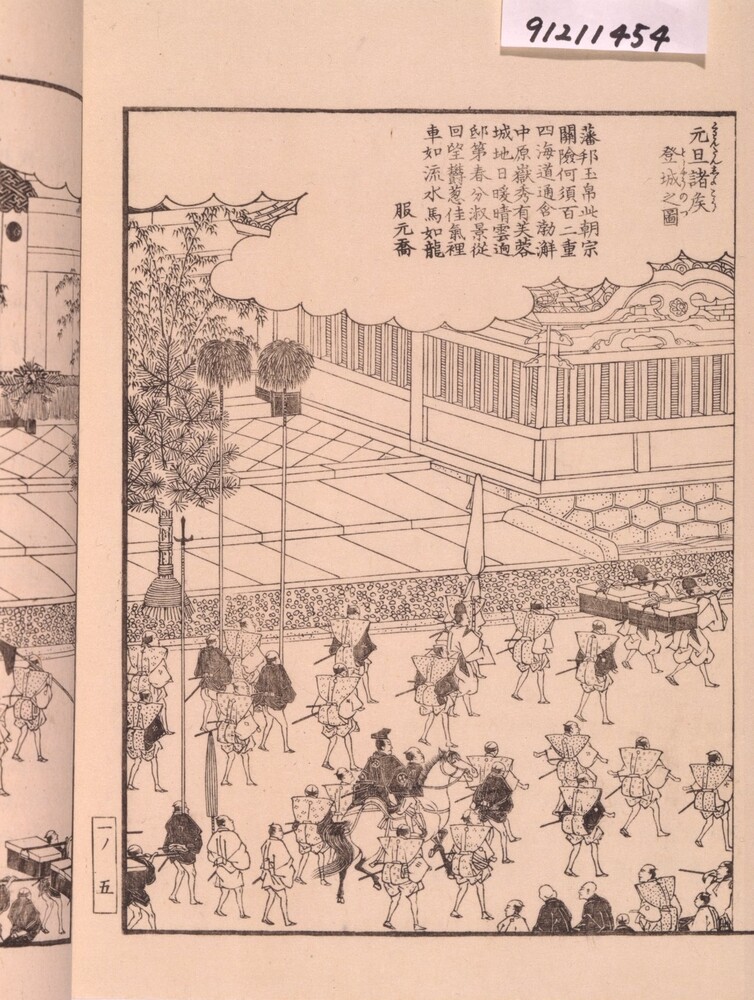 91211454
元旦諸侯
登城之圖
藩邦玉帛此朝宗
關險何須百二重
四海道通含渤澥
中原嶽秀有芙蓉
城地日暖晴雲遶
邸第春分淑景從
回望欝葱佳氣裡
車如流水馬如龍
服元喬
一ノ五